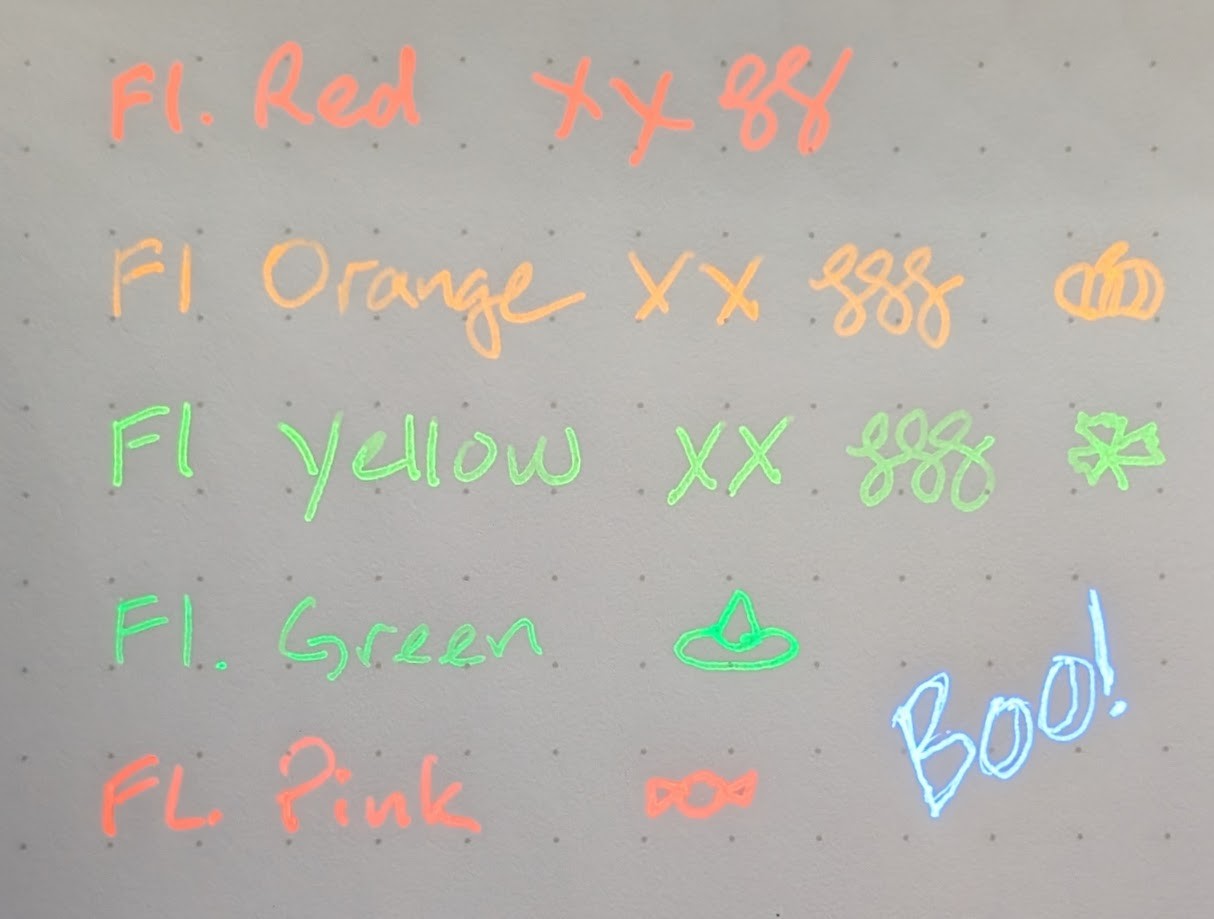 Fl. Red xx ggg
Fl Orange xx ggg
Fl Yellow xx ggg
Fl. Green
Boo!
FL. Pink